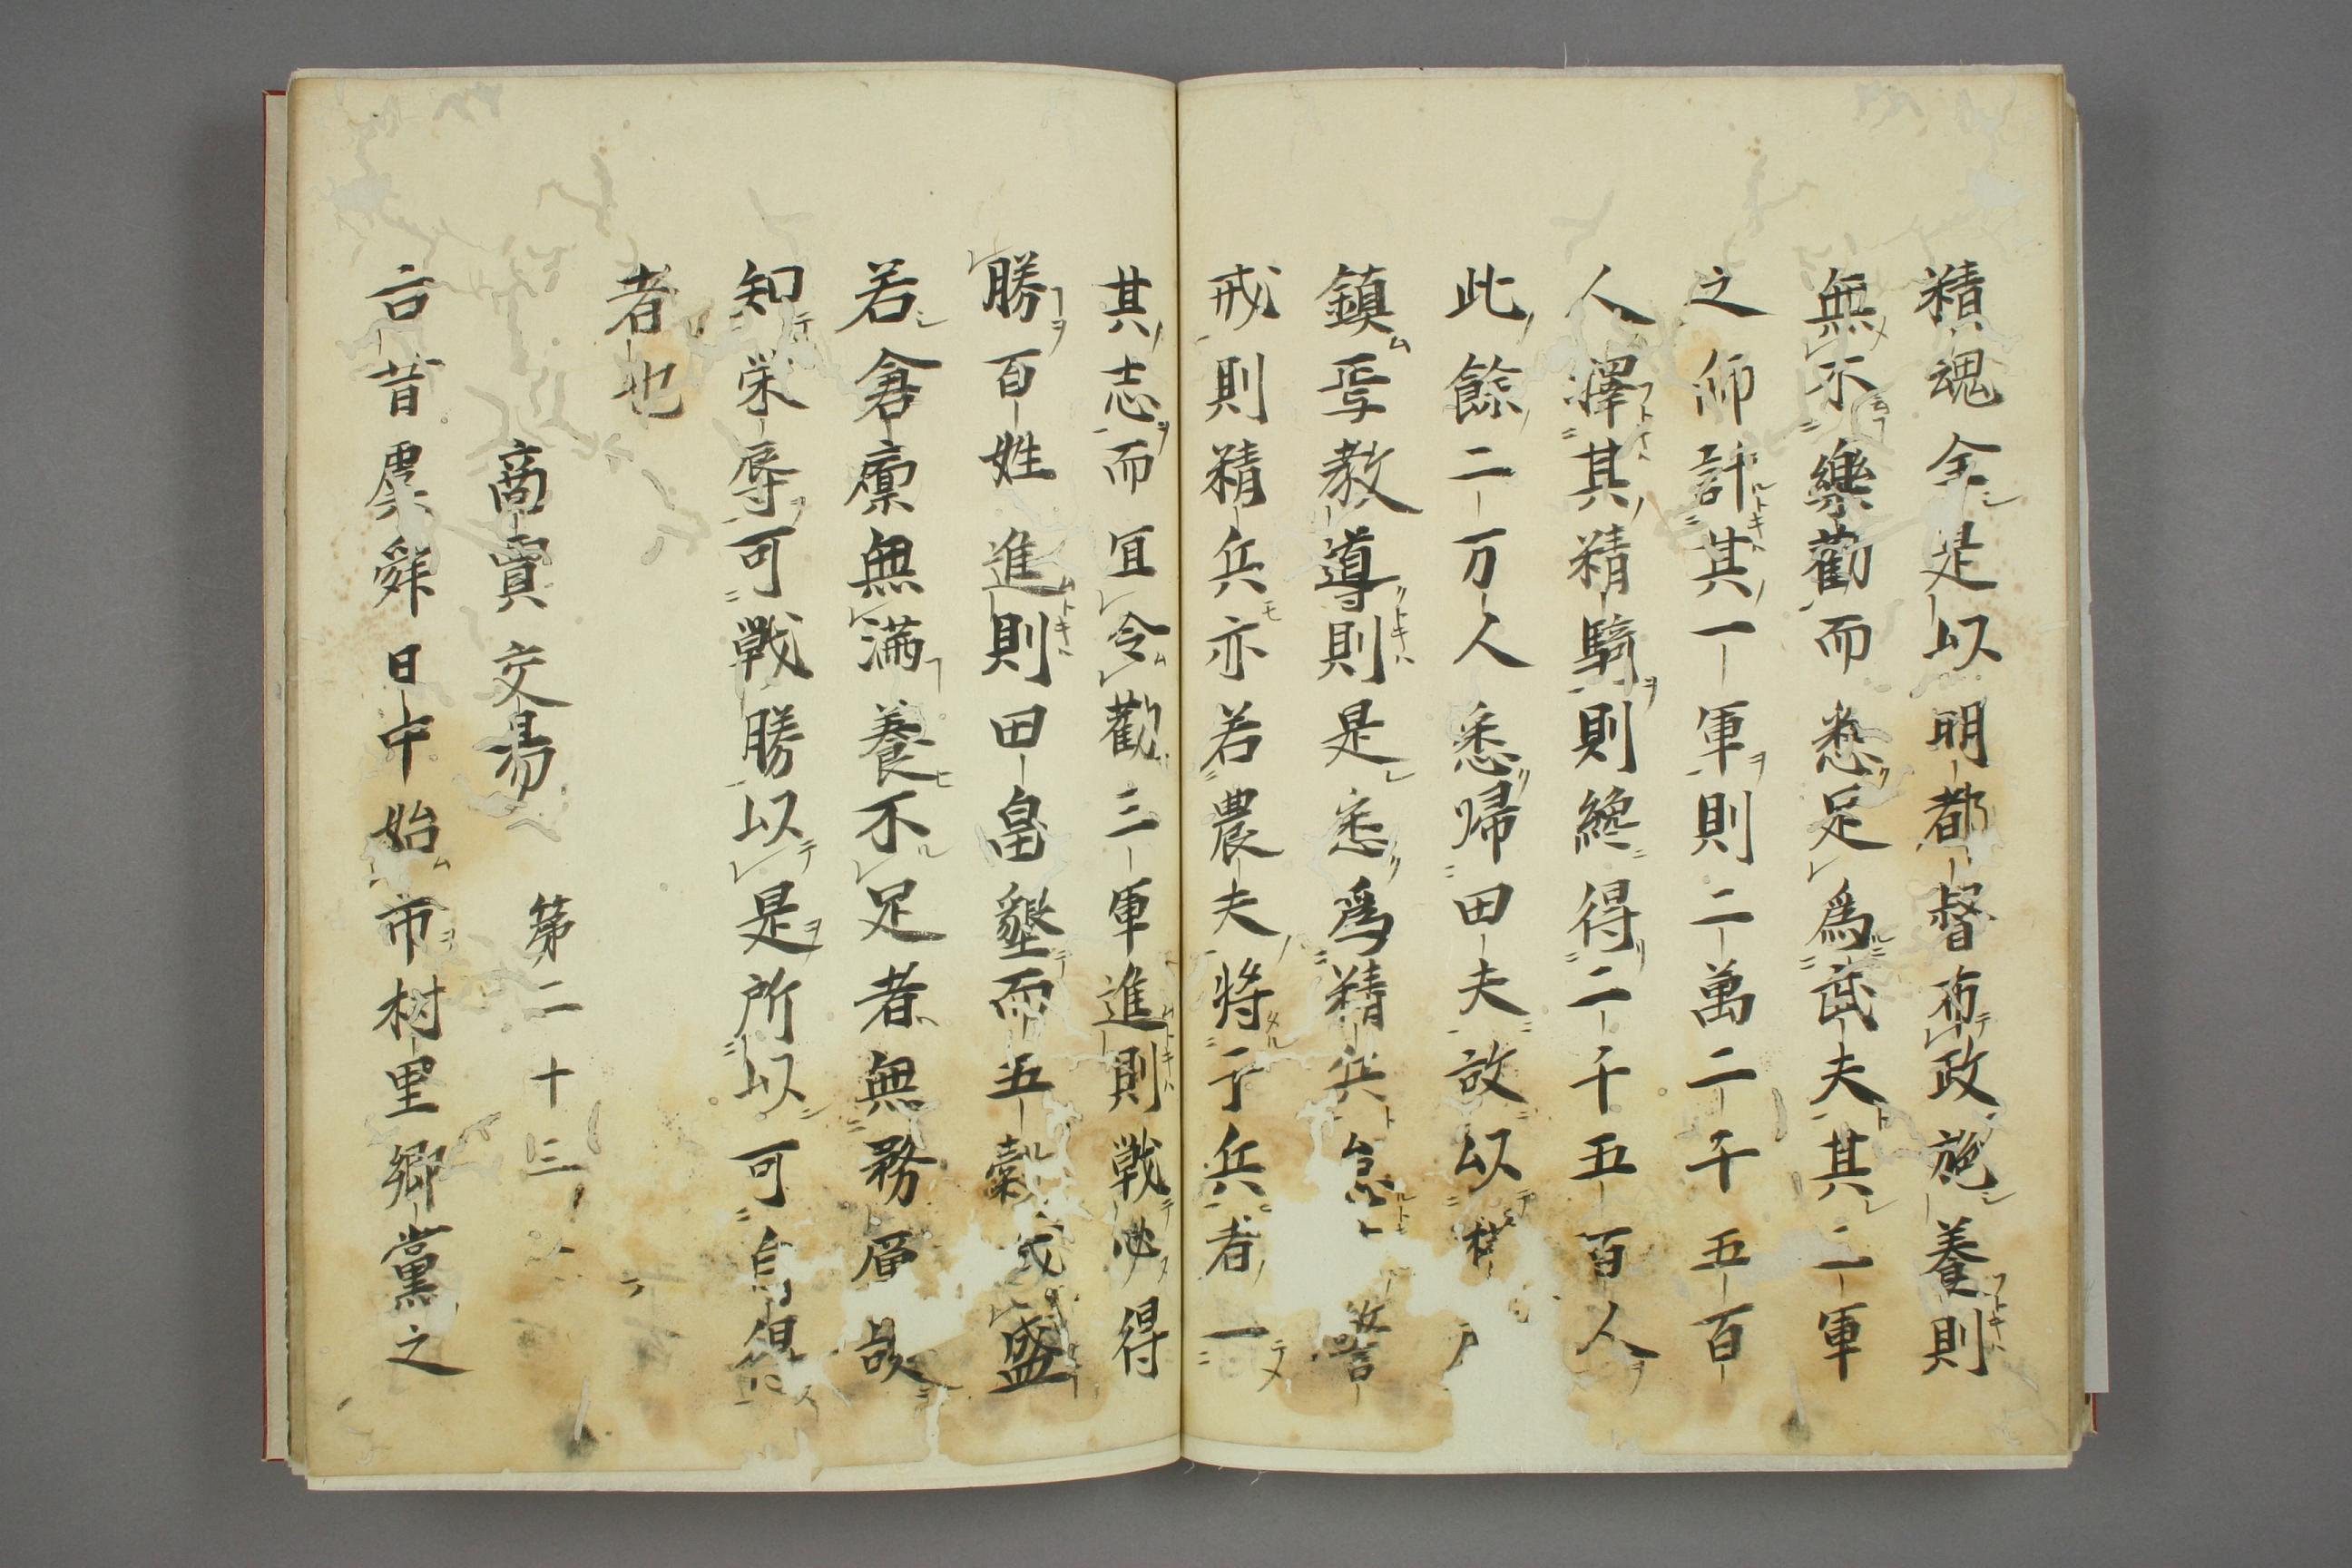 積魂全是以明都督布政施養則
無不樂勸而悉足為武夫其二軍
之師計其一軍則二萬二千五百
人擇其精騎則纔得二千五百人
此餘二万人悉帰田夫故以
鎮焉教導則是悉為精兵怠 警
戒則精兵亦若農夫将于兵者一
其志而宜令勸三軍進則戦必得
勝百姓進則田畠墾而五穀 盛
若倉廩無満養不足者無務 故
知栄辱可戦勝以是所以可
者也
商賣交易 第二十三
言昔虞舜日中始市村里郷黨之